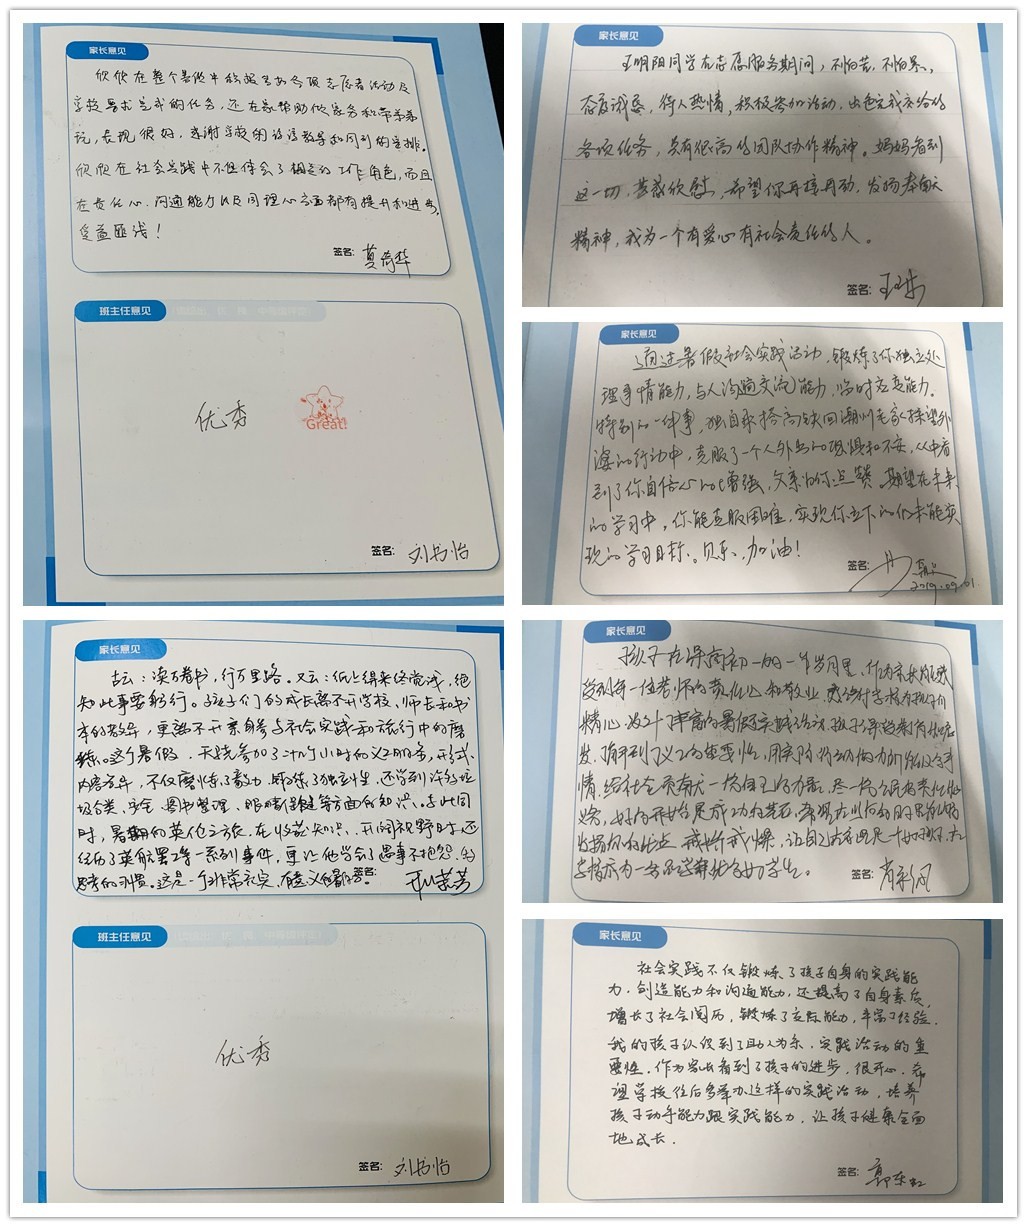 家长意见
欣欣在整个暑假中积极参加各项志愿者活动及
学校要求完成的任务，还在家帮助做家务和带弟弟
玩，表现很好，感谢学校的谆谆教导和周到的安排。
欣欣在社会实践中不但体会了相应的工作角色，而且
在责任心、沟通能力以及同理心方面都有提升和进步，
受益匪浅！
签名：
班主任意见
优秀
Great!
签名：刘书怡
家长意见
王明阳同学在志愿服务期间，不怕苦，不怕累，
态度诚恳，待人热情，积极参加活动，出色完成交给的
各项任务，具有很高的团队协作精神。妈妈看到
这一切，甚感欣慰，希望你再接再励，发扬奉献
精神，成为一个有爱心有社会责任的人。
签名：
家长意见
通过暑假社会实践活动，锻炼了你独立处
理事情能力，与人沟通交流能力，临时应变能力。
特别的一件事，独自乘搭高铁回潮州老家探望外
婆的行动中，克服了一个人外出的恐惧和不安，从中看
到了你自信心的增强，父亲为你点赞。期望在未来
的学习中，你能克服困难，实现你立下的仍未能实
现的学习目标。贝乐，加油！
签名：
2019.09.01
家长意见
古云：读万卷书，行万里路。又云：纸上得来终觉浅，绝
知此事要躬行。孩子们的成长离不开学校，师长和书
本的教导，更离不开亲身参与社会实践和旅行中的磨
练。这个暑假，天骁参加了三十几个小时的义工服务，形式、
内容各异，不仅磨炼了毅力，锻炼了独立性，还学到许多垃
圾分类、安全、图书整理、眼睛保健等方面的知识。与此同
时，暑期的英伦之旅，在收获知识、开阔视野时，还
经历了英航罢工等一系列事件，更让他学会了遇事不抱怨、多
思考的习惯。这是一个非常充实，有意义的暑假。
签名：
班主任意见
优秀
签名：刘书怡
家长意见
孩子在深高初一的一年岁月里，作为家长
受到每一位老师的责任心和敬业，感谢学校为孩子们
精心设计了丰富的暑假实践活动，孩子
发，
情，给社会贡献一份自己的力量，尽一份公民的责任和义
务，好的开始是成功的基石，希望在以后的日子里
发扬你的优点，戒骄戒躁，
签名：
家长意见
社会实践不仅锻炼了孩子自身的实践能
力，创造能力和沟通能力，还提高了自身素质，
增长了社会阅历，锻炼了交际能力，丰富了经验。
我的孩子认识到了助人为乐，实践活动的重
要性，作为家长看到了孩子的进步，很开心，希
望学校往后多举办这样的实践活动，培养
孩子动手能力跟实践能力，让孩子健康全面
地成长．
签名：